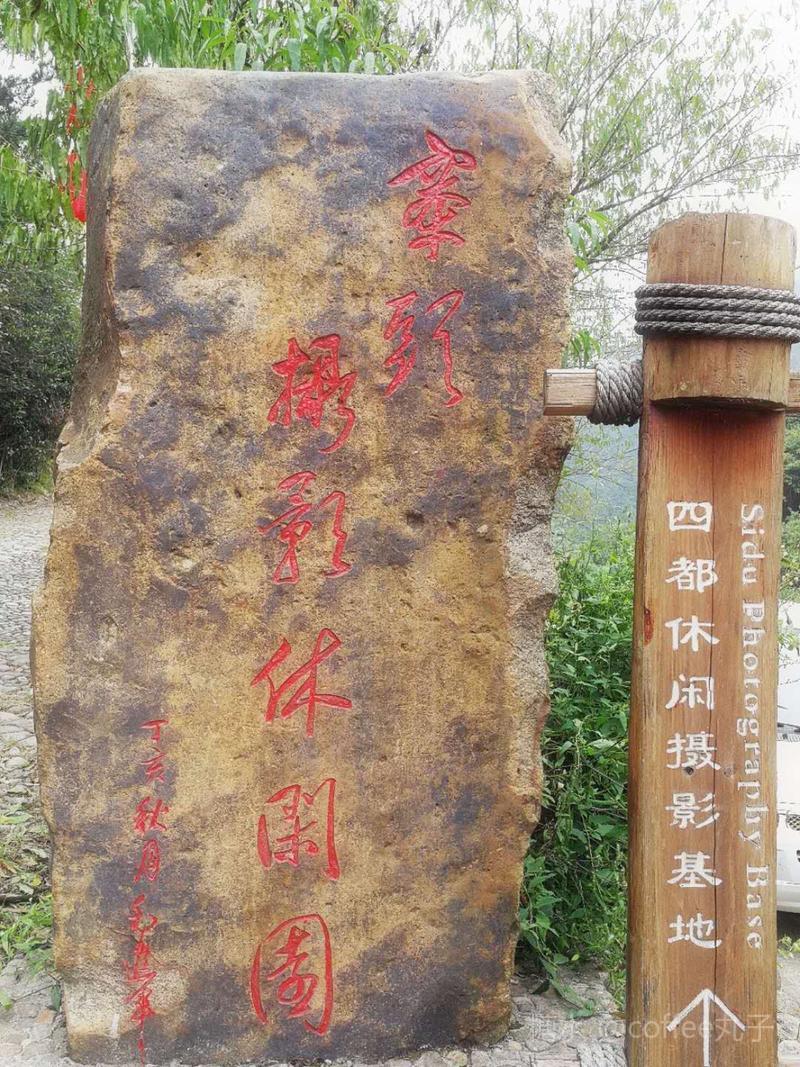 寨頭
攝影休閑園
丁亥秋月
四都休闲摄影基地
Sidu Photography Base
coffee丸子